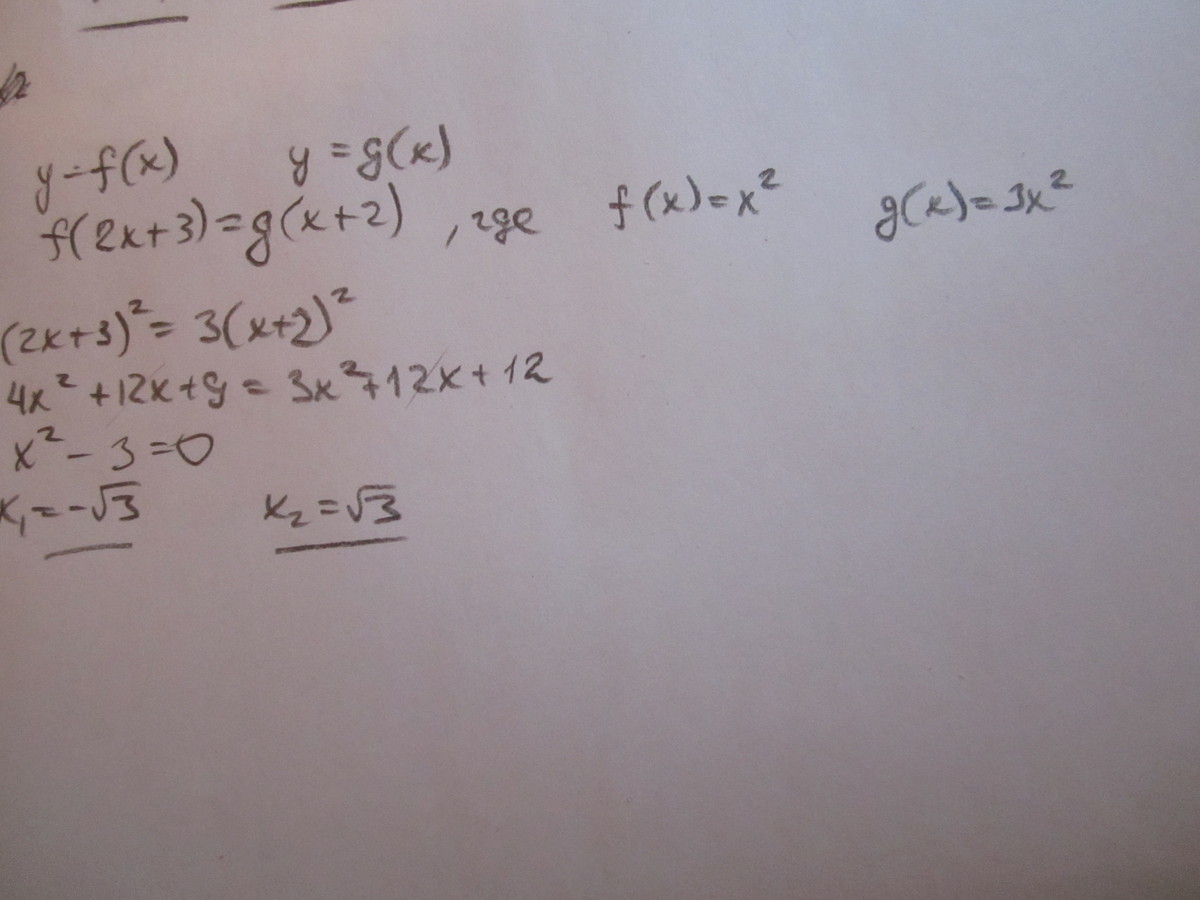 y=f(x) y=g(x)
f(2x+3)=g(x+2), где f(x)=x² g(x)=3x²
(2x+3)²=3(x+2)²
4x²+12x+9=3x²+12x+12
x²-3=0
x₁=-√3 x₂=√3